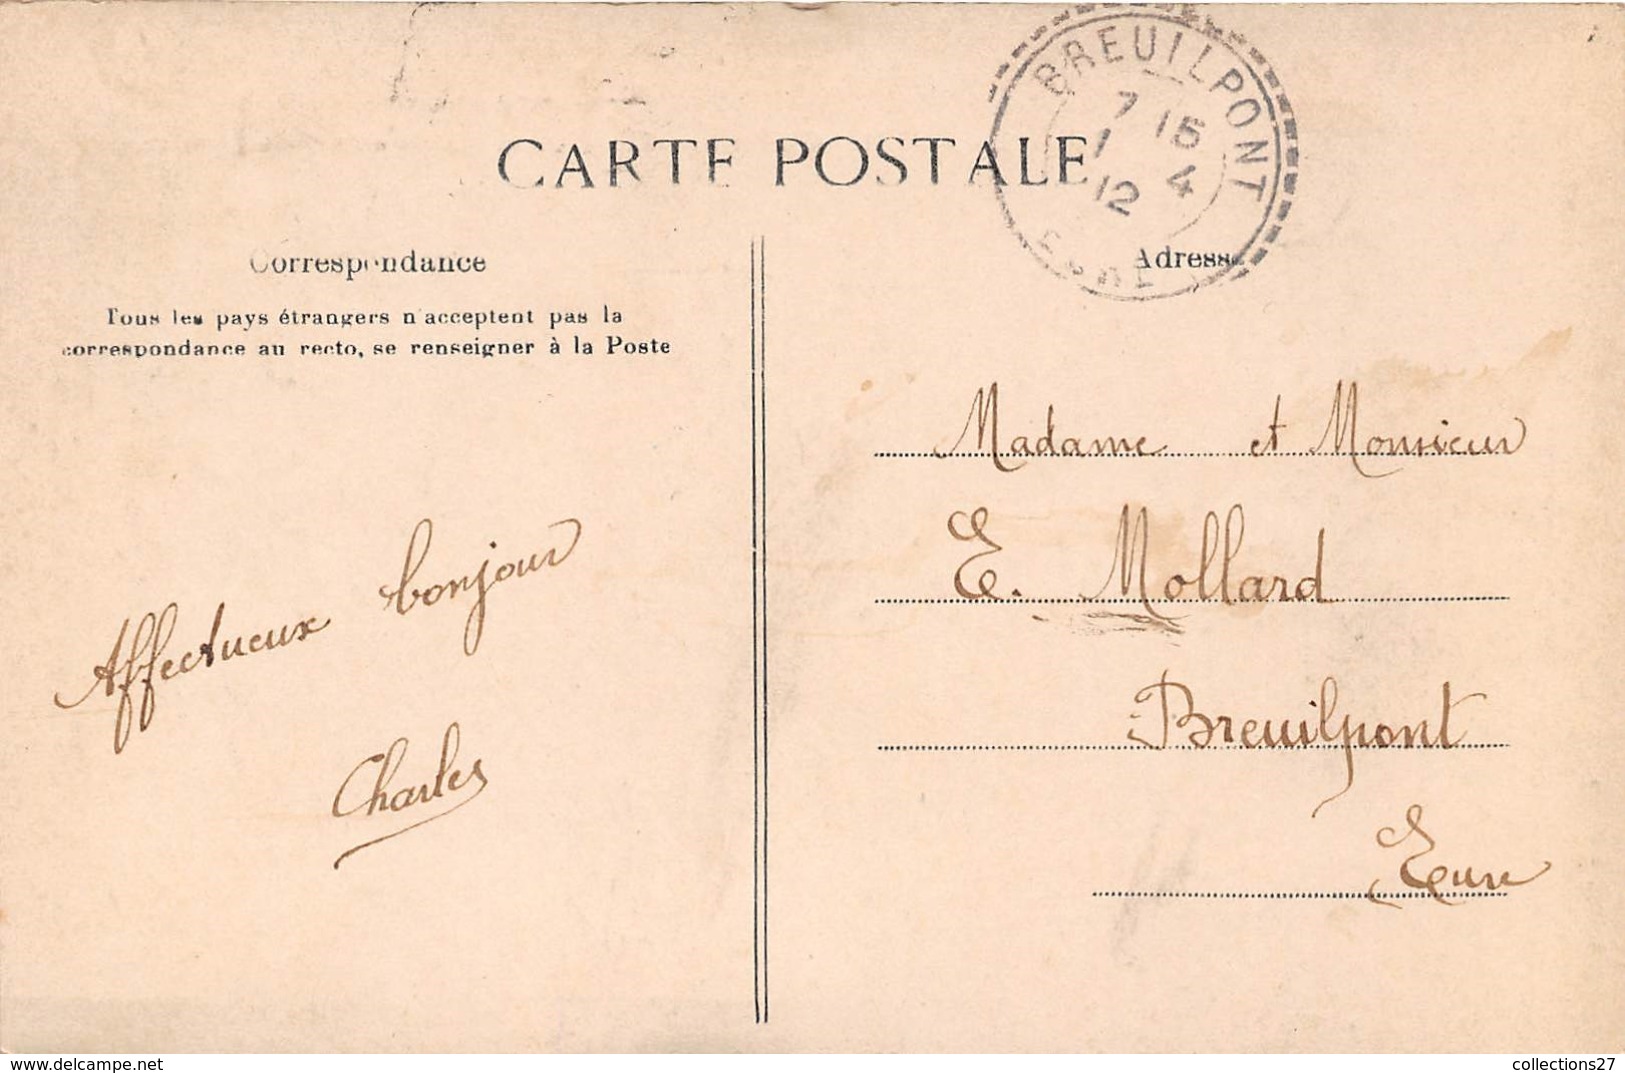 CARTE POSTALE
BREUILPONT
7 15
1 4
12
EURE
Correspondance
Adresse
Tous les pays étrangers n'acceptent pas la
correspondance au recto, se renseigner à la Poste
Affectueux bonjour
Charles
Madame et Monsieur
E. Mollard
Breuilpont
Eure
www.delcampe.net
collections27